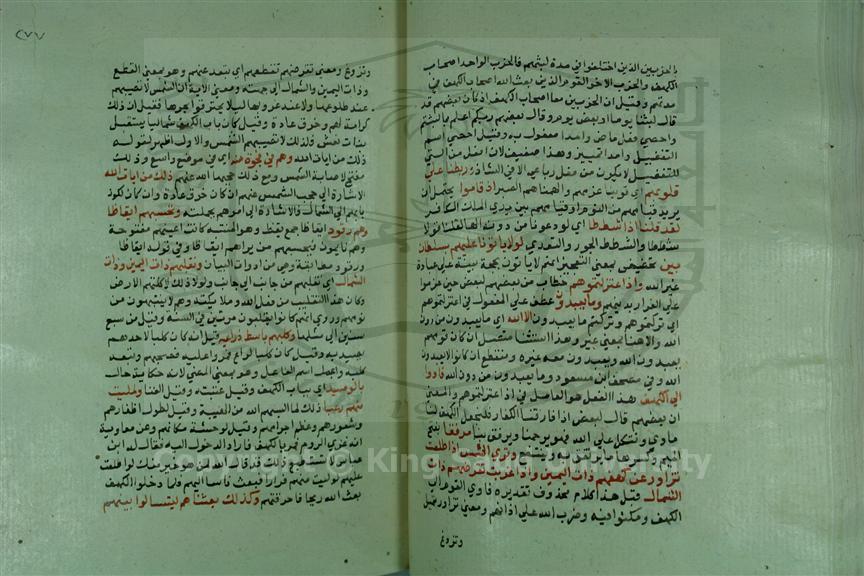 بالحزبين الذين اختلفوا في مدة لبثهم فالحزب الواحد اصحاب
الكهف والحزب الاخر القوم الذين بعث الله اصحاب الكهف في
مدتهم وقيل ان الحزبين معا اصحاب الكهف اذ كان بعضهم قد
قال لبثنا يوما او بعض يوم وقال بعضهم ربكم اعلم بما لبثتم
واحصي فعل ماض وامدا مفعول به وقيل احصي اسم
التفضيل وامدا تمييز وهذا ضعيف لان افعل من التي
للتفضيل لا يكون من فعل رباعي الا في الشاذ وربطنا علي
قلوبهم اي قوينا عزمهم والهمناهم الصبر اذ قاموا يحتمل ان
يريد قيامهم من النوم او قيامهم بين يدي الملك الكافر
لقد قلنا اذا شططا اي لو دعونا من دونه الها لقلنا قولا
شططا والشطط الجور والتعدي لولا ياتون عليهم بسلطان
بين تحضيض بمعني التعجيز انهم لا ياتون بحجة بينة علي عبادة
غير الله واذ اعتزلتموهم خطاب من بعضهم لبعض حين عزموا
علي الفرار بدينهم وما يعبدون عطف علي المفعول في اعتزلتموهم
اي تركتموهم وتركتم ما يعبدون الا الله اي ما يعبدون من دون
الله والا هنا بمعني غير وهذا استثنا متصل ان كان قومهم
يعبدون الله ويعبدون معه غيره ومنقطع ان كانوا لا يعبدون
الله وفي مصحف ابن مسعود وما يعبدون من دون الله فاووا
الي الكهف هذا الفعل هو العامل في اذ اعتزلتموهم والمعني
ان بعضهم قال لبعض اذا فارقنا الكفار فلنجعل الكهف لنا
ماوي ونتكل علي الله فهو يرحمنا ويرفق بنا مرفقا بفتح
الميم وكسرها ما يرتفق به وينتفع وتري الشمس اذا طلعت
تزاور عن كهفهم ذات اليمين واذا غربت تقرضهم ذات
الشمال قبل هذا كلام محذوف تقديره فاوي القوم الي
الكهف ومكثوا فيه وضرب الله علي اذانهم ومعني تزاور تميل
وتزوغ
٢٧٧
وتزوغ ومعني تقرضهم تقطعهم اي تبتعد عنهم وهو بمعني القطع
وذات اليمين والشمال اي جهته ومعني الاية ان الشمس لا تصيبهم
عند طلوعها ولا عند غروبها ليلا يحترقوا بحرها فقيل ان ذلك
كرامة لهم وخرق عادة وقيل كان باب الكهف شماليا يستقبل
بنات نعش فلذلك لا تصيبهم الشمس والاول اظهر لقوله
ذلك من ايات الله وهم في فجوة منه اي في موضع واسع وذلك
مفتح لاصابة الشمس ومع ذلك حجبها الله عنهم ذلك من ايات الله
الاشارة الي حجب الشمس عنهم ان كان خرق عادة وان كان لكون
بابهم الي الشمال فالاشارة الي امرهم بجملته وتحسبهم ايقاظا
وهم رقود ايقاظا جمع يقظ وهو المنتبه كانت اعينهم مفتوحة
وهم نايمون فيحسبهم من يراهم ايقاظا وفي قوله ايقاظا
ورقود مطابقة وهي من ادوات البيان ونقلبهم ذات اليمين وذات
الشمال اي نقلبهم من جانب الي جانب ولولا ذلك لاكلتهم الارض
وكان هذا التقليب من فعل الله وملايكته وهم لا ينتبهون من
نومهم وروي انهم كانوا يقلبون مرتين في السنة وقيل من سبع
سنين الي مثلها وكلبهم باسط ذراعيه قيل انه كان كلبا لاحدهم
يصيد به وقيل كان كلبا لراع فمروا عليه فصحبهم وتبعه
كلبه واعمل اسم الفاعل وهو بمعني المضي لانه حكاية حال
بالوصيد اي بباب الكهف وقيل عتبته وقيل الفنا ولمليت
منهم رعبا ذلك لما البسهم الله من الهيبة وقيل لطول اظفارهم
وشعورهم وعظم اجرامهم وقيل لوحشة مكانهم وعن معاوية
انه غزي الروم فمر بالكهف فاراد الدخول اليه فقال له ابن
عباس لا تستطيع ذلك قد قال الله لمن هو خير منك لو اطلعت
عليهم لوليت منهم فرارا فبعث ناسا اليهم فلما دخلوا الكهف
بعث الله ريحا فاحرقتهم وكذلك بعثناهم ليتسالوا بينهم
Copyright © King Saud University